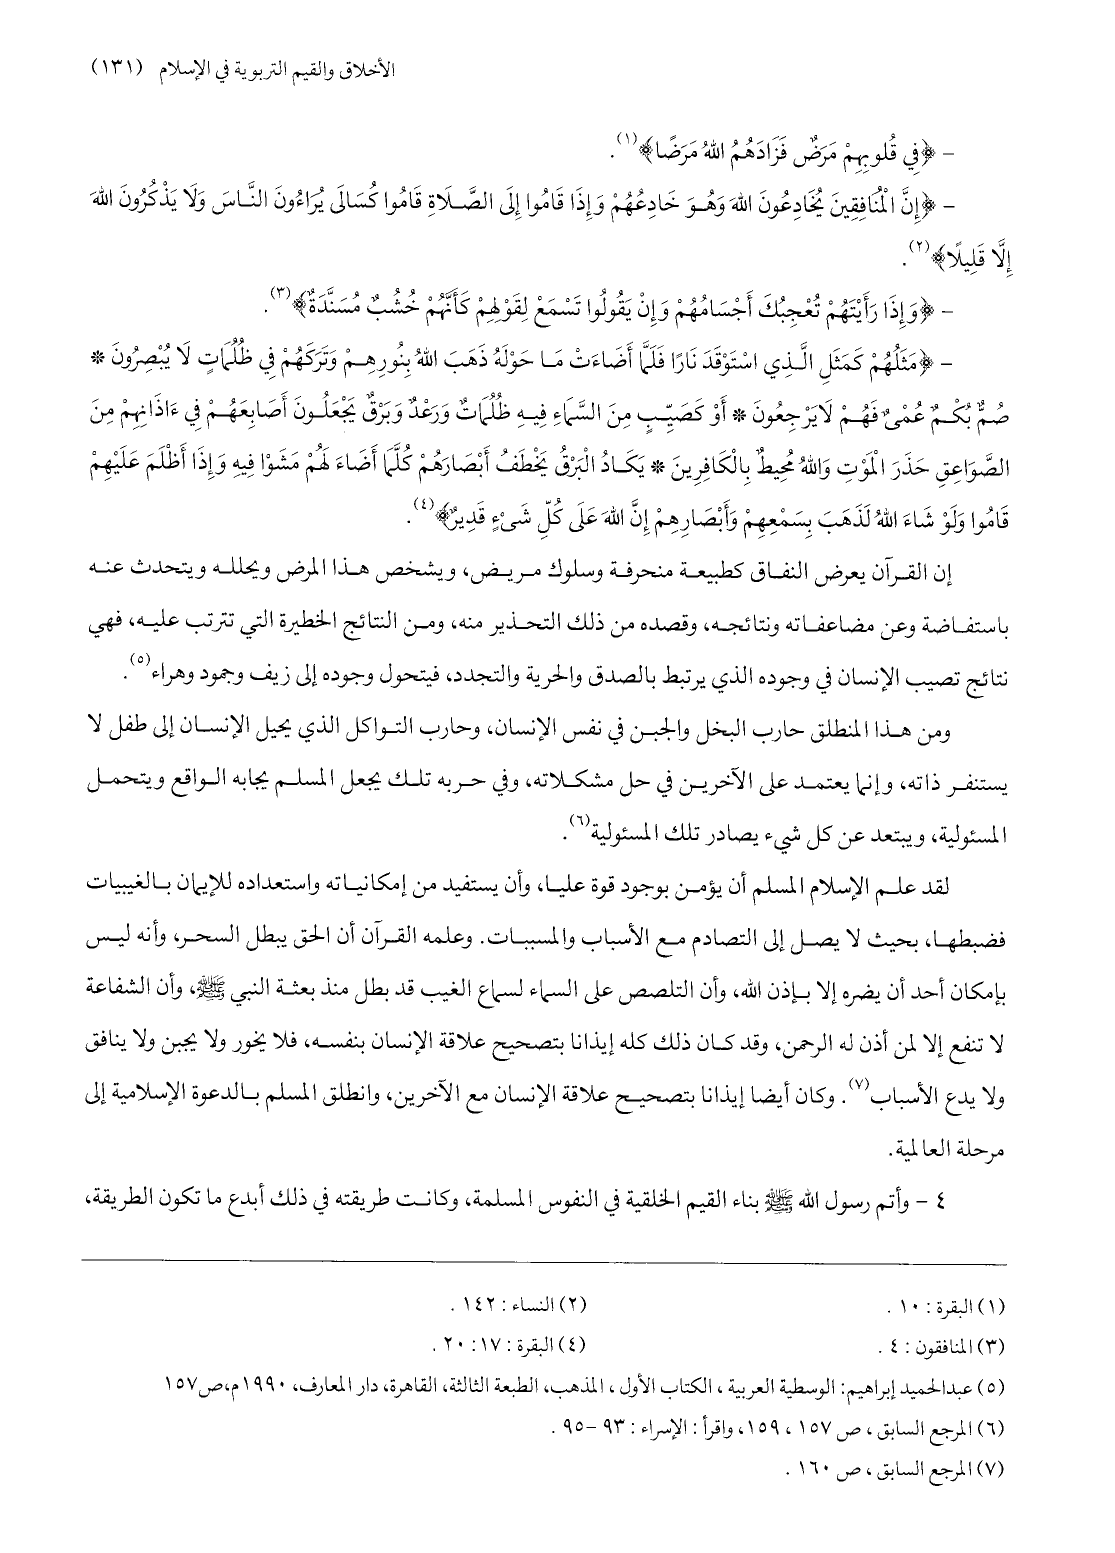 الأخلاق والقيم التربوية في الإسلام (١٣١)
- ﴿فِي قُلُوبِهِمْ مَرَضٌ فَزَادَهُمُ اللهُ مَرَضًا﴾(١).
- ﴿إِنَّ الْمُنَافِقِينَ يُخَادِعُونَ اللهَ وَهُوَ خَادِعُهُمْ وَإِذَا قَامُوا إِلَى الصَّلَاةِ قَامُوا كُسَالَى يُرَاءُونَ النَّاسَ وَلَا يَذْكُرُونَ اللهَ
إِلَّا قَلِيلًا﴾(٢).
- ﴿وَإِذَا رَأَيْتَهُمْ تُعْجِبُكَ أَجْسَامُهُمْ وَإِنْ يَقُولُوا تَسْمَعْ لِقَوْلِهِمْ كَأَنَّهُمْ خُشُبٌ مُسَنَّدَةٌ﴾(٣).
- ﴿مَثَلُهُمْ كَمَثَلِ الَّذِي اسْتَوْقَدَ نَارًا فَلَمَّا أَضَاءَتْ مَا حَوْلَهُ ذَهَبَ اللهُ بِنُورِهِمْ وَتَرَكَهُمْ فِي ظُلُمَاتٍ لَا يُبْصِرُونَ *
صُمٌّ بُكْمٌ عُمْىٌ فَهُمْ لَايَرْجِعُونَ * أَوْ كَصَيِّبٍ مِنَ السَّمَاءِ فِيهِ ظُلُمَاتٌ وَرَعْدٌ وَبَرْقٌ يَجْعَلُونَ أَصَابِعَهُمْ فِي ءَاذَانِهِمْ مِنَ
الصَّوَاعِقِ حَذَرَ الْمَوْتِ وَاللهُ مُحِيطٌ بِالْكَافِرِينَ * يَكَادُ الْبَرْقُ يَخْطَفُ أَبْصَارَهُمْ كُلَّمَا أَضَاءَ لَهُمْ مَشَوْا فِيهِ وَإِذَا أَظْلَمَ عَلَيْهِمْ
قَامُوا وَلَوْ شَاءَ اللهُ لَذَهَبَ بِسَمْعِهِمْ وَأَبْصَارِهِمْ إِنَّ اللهَ عَلَى كُلِّ شَىْءٍ قَدِيرٌ﴾(٤).
إن القرآن يعرض النفاق كطبيعة منحرفة وسلوك مريض، ويشخص هذا المرض ويحلله ويتحدث عنه
باستفاضة وعن مضاعفاته ونتائجه، وقصده من ذلك التحذير منه، ومن النتائج الخطيرة التي تترتب عليه، فهي
نتائج تصيب الإنسان في وجوده الذي يرتبط بالصدق والحرية والتجدد، فيتحول وجوده إلى زيف وجمود وهراء(٥).
ومن هذا المنطلق حارب البخل والجبن في نفس الإنسان، وحارب التواكل الذي يحيل الإنسان إلى طفل لا
يستنفر ذاته، وإنما يعتمد على الآخرين في حل مشكلاته، وفي حربه تلك يجعل المسلم يجابه الواقع ويتحمل
المسئولية، ويبتعد عن كل شيء يصادر تلك المسئولية(٦).
لقد علم الإسلام المسلم أن يؤمن بوجود قوة عليا، وأن يستفيد من إمكانياته واستعداده للإيمان بالغيبيات
فضبطها، بحيث لا يصل إلى التصادم مع الأسباب والمسببات. وعلمه القرآن أن الحق يبطل السحر، وأنه ليس
بإمكان أحد أن يضره إلا بإذن الله، وأن التلصص على السماء لسماع الغيب قد بطل منذ بعثة النبي ﷺ، وأن الشفاعة
لا تنفع إلا لمن أذن له الرحمن، وقد كان ذلك كله إيذانا بتصحيح علاقة الإنسان بنفسه، فلا يخور ولا يجبن ولا ينافق
ولا يدع الأسباب(٧). وكان أيضا إيذانا بتصحيح علاقة الإنسان مع الآخرين، وانطلق المسلم بالدعوة الإسلامية إلى
مرحلة العالمية.
٤ - وأتم رسول الله ﷺ بناء القيم الخلقية في النفوس المسلمة، وكانت طريقته في ذلك أبدع ما تكون الطريقة،
(١) البقرة : ١٠ . (٢) النساء : ١٤٢ .
(٣) المنافقون : ٤ . (٤) البقرة : ١٧: ٢٠ .
(٥) عبدالحميد إبراهيم: الوسطية العربية ، الكتاب الأول ، المذهب، الطبعة الثالثة، القاهرة، دار المعارف، ١٩٩٠م،ص١٥٧
(٦) المرجع السابق ، ص ١٥٧ ، ١٥٩، واقرأ : الإسراء : ٩٣ -٩٥ .
(٧) المرجع السابق ، ص ١٦٠ .